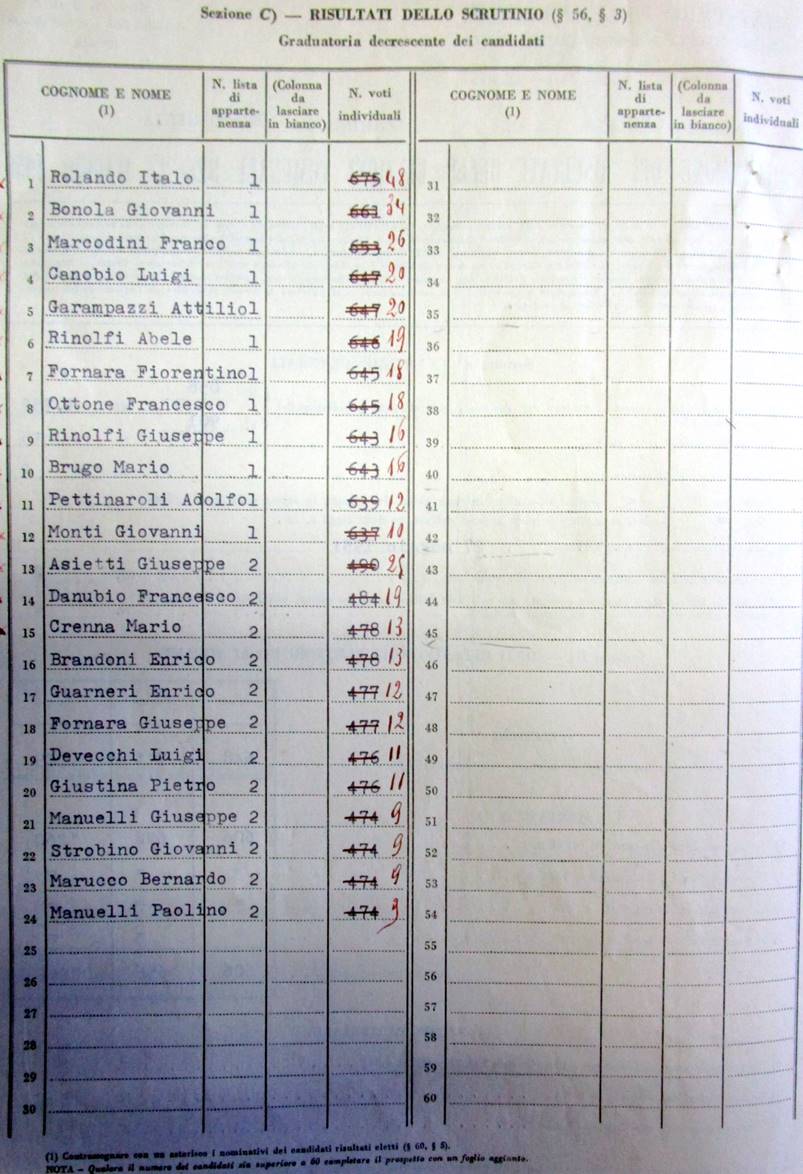 Sezione C) — RISULTATI DELLO SCRUTINIO (§ 56, § 3)
Graduatoria decrescente dei candidati
COGNOME E NOME (1) N. lista di apparte-nenza (Colonna da lasciare in bianco) N. voti individuali COGNOME E NOME (1) N. lista di apparte-nenza (Colonna da lasciare in bianco) N. voti individuali
1 Rolando Italo 1 675 48 31
2 Bonola Giovanni 1 661 34 32
3 Marcodini Franco 1 653 26 33
4 Canobio Luigi 1 647 20 34
5 Garampazzi Attilio1 647 20 35
6 Rinolfi Abele 1 646 19 36
7 Fornara Fiorentino1 645 18 37
8 Ottone Francesco 1 645 18 38
9 Rinolfi Giuseppe 1 643 16 39
10 Brugo Mario 1 643 16 40
11 Pettinaroli Adolfo1 639 12 41
12 Monti Giovanni 1 637 10 42
13 Asietti Giuseppe 2 490 25 43
14 Danubio Francesco 2 484 19 44
15 Crenna Mario 2 478 13 45
16 Brandoni Enrico 2 478 13 46
17 Guarneri Enrico 2 477 12 47
18 Fornara Giuseppe 2 477 12 48
19 Devecchi Luigi 2 476 11 49
20 Giustina Pietro 2 476 11 50
21 Manuelli Giuseppe 2 474 9 51
22 Strobino Giovanni 2 474 9 52
23 Marucco Bernardo 2 474 9 53
24 Manuelli Paolino 2 474 9 54
25 55
26 56
27 57
28 58
29 59
30 60
(1) Contrassegnare con un asterisco i nominativi dei candidati risultati eletti (§ 60, § 5).
NOTA - Qualora il numero dei candidati sia superiore a 60 completare il prospetto con un foglio aggiunto.